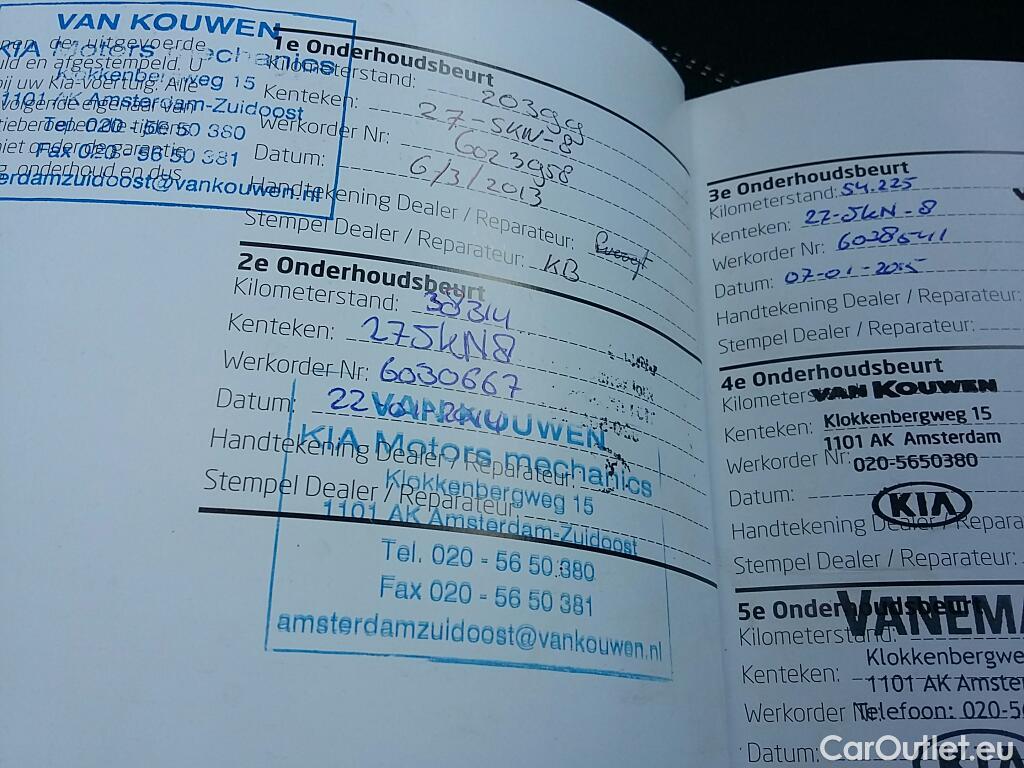 VAN KOUWEN
KIA Motors mechanics
Klokkenbergweg 15
1101 AK Amsterdam-Zuidoost
Tel. 020 - 56 50 380
Fax 020 - 56 50 381
erdamzuidoost@vankouwen.nl
nen de uitgevoerde
uld en afgestempeld. U
bij uw Kia-voertuig. Alle
volgende eigenaar van
niet onder de garantie
g, onderhoud en dus
1e Onderhoudsbeurt
Kilometerstand: 20399
Kenteken: 27-SKN-8
Werkorder Nr: 6023958
Datum: 6/3/2013
Handtekening Dealer / Reparateur:
Stempel Dealer / Reparateur: KB
2e Onderhoudsbeurt
Kilometerstand: 38314
Kenteken: 27SKN8
Werkorder Nr: 6030667
Datum: 22
Handtekening Dealer / Reparateur:
Stempel Dealer / Reparateur:
VAN KOUWEN
KIA Motors mechanics
Klokkenbergweg 15
1101 AK Amsterdam-Zuidoost
Tel. 020 - 56 50 380
Fax 020 - 56 50 381
amsterdamzuidoost@vankouwen.nl
3e Onderhoudsbeurt
Kilometerstand: 54.225
Kenteken: 27-SKN-8
Werkorder Nr: 6038541
Datum: 07-01-2015
Handtekening Dealer / Reparateur:
Stempel Dealer / Reparateur:
4e Onderhoudsbeurt
Kilometers
Kenteken:
Werkorder Nr:
Datum:
Handtekening Dealer / Repara
Stempel Dealer / Reparateur:
VAN KOUWEN
Klokkenbergweg 15
1101 AK Amsterdam
020-5650380
KIA
5e Onderhoudsbeurt
Kilometerstand:
Kenteken:
Werkorder Nr:
Datum:
VANEMA
Klokkenbergwe
1101 AK Amste
Telefoon: 020-5
KIA
CarOutlet.eu